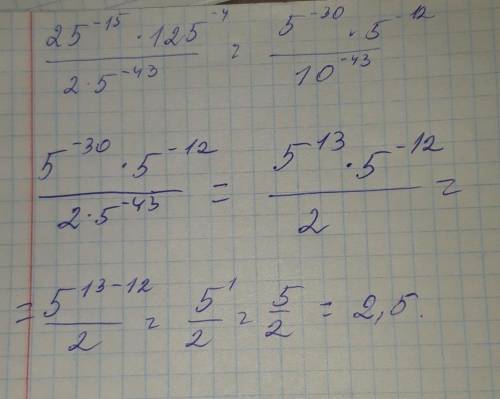 25^-15 · 125^-4 / 2·5^-43 = 5^-30 · 5^-12 / 10^-43
5^-30 · 5^-12 / 2·5^-43 = 5^13 · 5^-12 / 2 =
= 5^13-12 / 2 = 5^1 / 2 = 5 / 2 = 2,5.